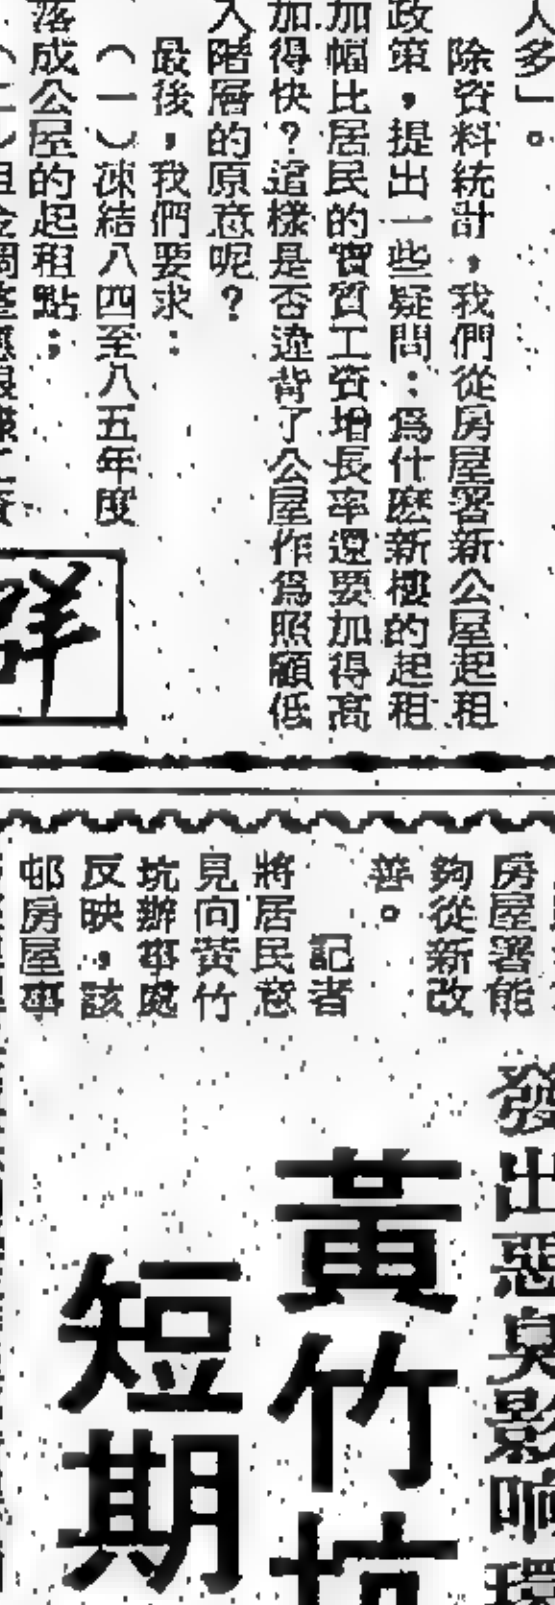 人多」。
除資料統計，我們從房屋署新公屋起租
政策，提出一些疑問：爲什麽新樓的起租
加幅比居民的實質工資增長率還要加得高
加得快？這樣是否違背了公屋作爲照顧低
入階層的原意呢？
最後，我們要求：
（一）凍結八四至八五年度
落成公屋的起租點；
群
房屋署能
夠從新改
善。
記者
將居民意
見向黃竹
坑辦事處
反映，該
邨房屋事
發出惡臭影响環
黃竹坑
短期